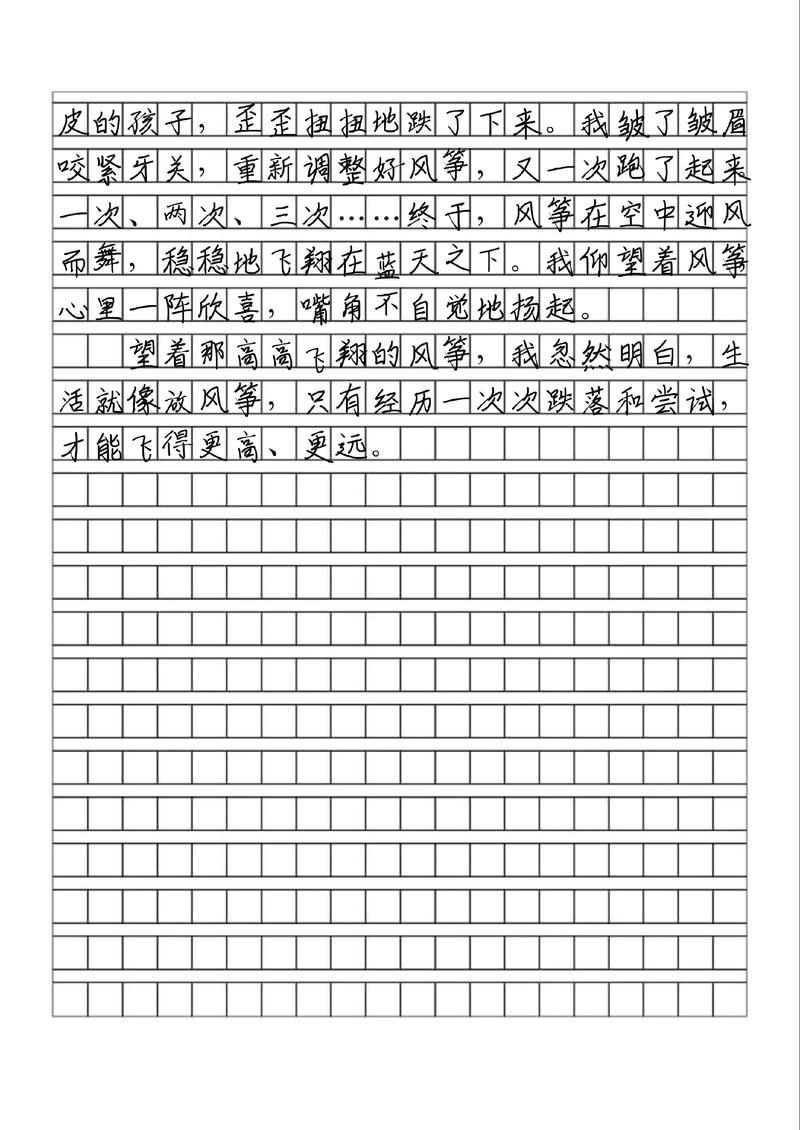 皮的孩子，歪歪扭扭地跌了下来。我皱了皱眉
咬紧牙关，重新调整好风筝，又一次跑了起来
一次、两次、三次……终于，风筝在空中迎风
而舞，稳稳地飞翔在蓝天之下。我仰望着风筝
心里一阵欣喜，嘴角不自觉地扬起。
望着那高高飞翔的风筝，我忽然明白，生
活就像放风筝，只有经历一次次跌落和尝试，
才能飞得更高、更远。